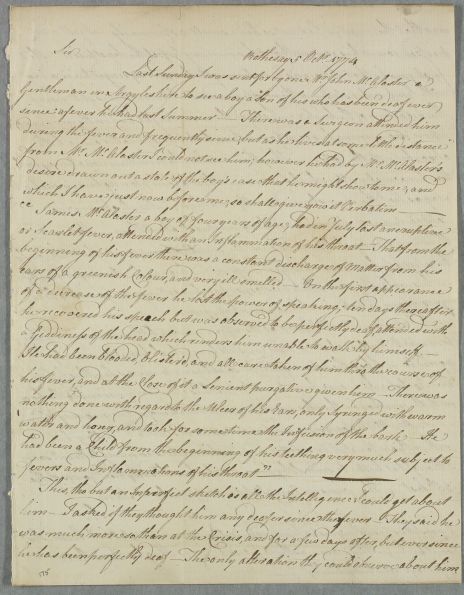 Sir
Rothesay 5 Octr. 1774
Last Sunday I was sent for by one Mr John McAlaster a
Gentleman in Argyleshire to see a boy a Son of his who has been deaf ever
since a fever he had last Summer — There was a Surgeon attended him
during the fever and frequently since but as he lives at some little distance
from Mr McAlaster I could not see him, however he had by Mr McAllaster's
desire drawn out a state of the boy's case that he might show to me, and
which I have just now before me, so shall give you it Verbatim —
"James McAlaster a boy of four years of age, had in July last an eruptive
or Scarlet fever, attended with an Inflammation of his throat — That from the
beginning of his fever there was a constant discharge of Matter from his
ears of a greenish Colour, and very ill smelled — On the first appearance
of a decrease of this fever he lost the power of speaking, ten days thereafter
he recovered his speach but was observed to be perfectly deaf attended with
a Giddiness of the head which renders him unable to walk by himself —
He had been Blooded, Blistered, and all care taken of him thro the course of
his fever, and at the Close of it a Lenient purgative given him — There was
nothing done with regard to the Ulcer of his Ear, only Syringed with warm
water and honey, and took for some time the Infusion of the bark — He
had been a Child from the beginning of his teething very much subject to
fevers and Inflammations of his throat" —
This, tho but an Imperfect sketch is all the Intelligence I could get about
him — I asked if they thought him any deafer since the fever — They said he
was much more so than at the Crisis, and for a few days after, but ever since
he has been perfectly deaf — The only alteration they could observe about him
175